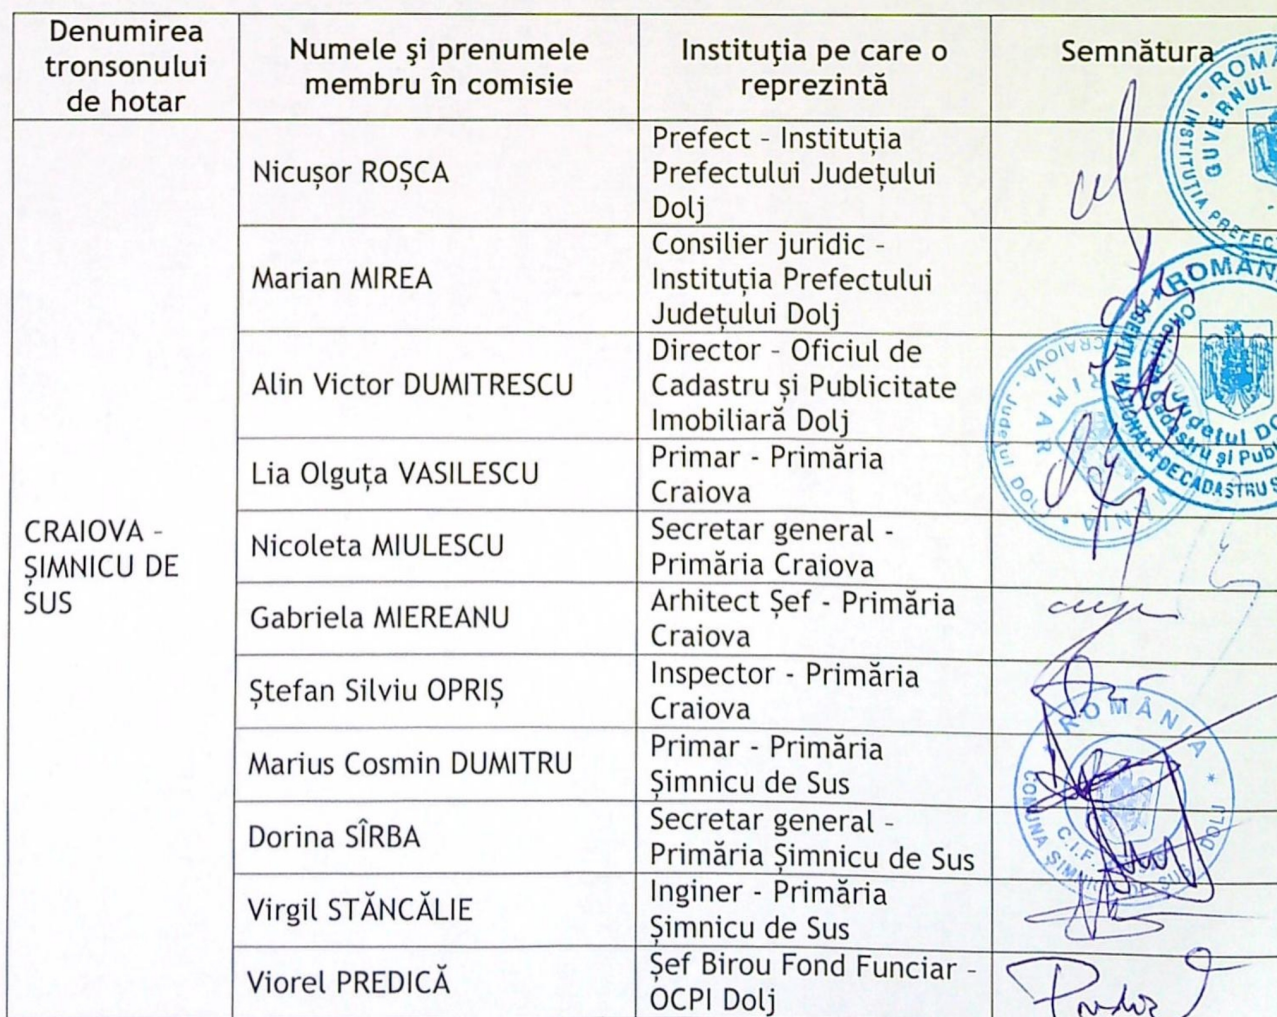 Denumirea
tronsonului
de hotar
Numele şi prenumele
membru în comisie
Instituţia pe care o
reprezintă
Semnătura
CRAIOVA -
ȘIMNICU DE
SUS
Nicușor ROȘCA
Prefect - Instituția
Prefectului Județului
Dolj
Marian MIREA
Consilier juridic -
Instituția Prefectului
Județului Dolj
Alin Victor DUMITRESCU
Director - Oficiul de
Cadastru și Publicitate
Imobiliară Dolj
Lia Olguța VASILESCU
Primar - Primăria
Craiova
Nicoleta MIULESCU
Secretar general -
Primăria Craiova
Gabriela MIEREANU
Arhitect Șef - Primăria
Craiova
Ștefan Silviu OPRIȘ
Inspector - Primăria
Craiova
Marius Cosmin DUMITRU
Primar - Primăria
Șimnicu de Sus
Dorina SÎRBA
Secretar general -
Primăria Șimnicu de Sus
Virgil STĂNCĂLIE
Inginer - Primăria
Șimnicu de Sus
Viorel PREDICĂ
Șef Birou Fond Funciar -
OCPI Dolj
GUVERNUL
CRAIOVA • Județul DOLJ
PRIMAR
ROMÂNIA
COMUNA ȘIMNICU DE SUS DOLJ
C.I.F.